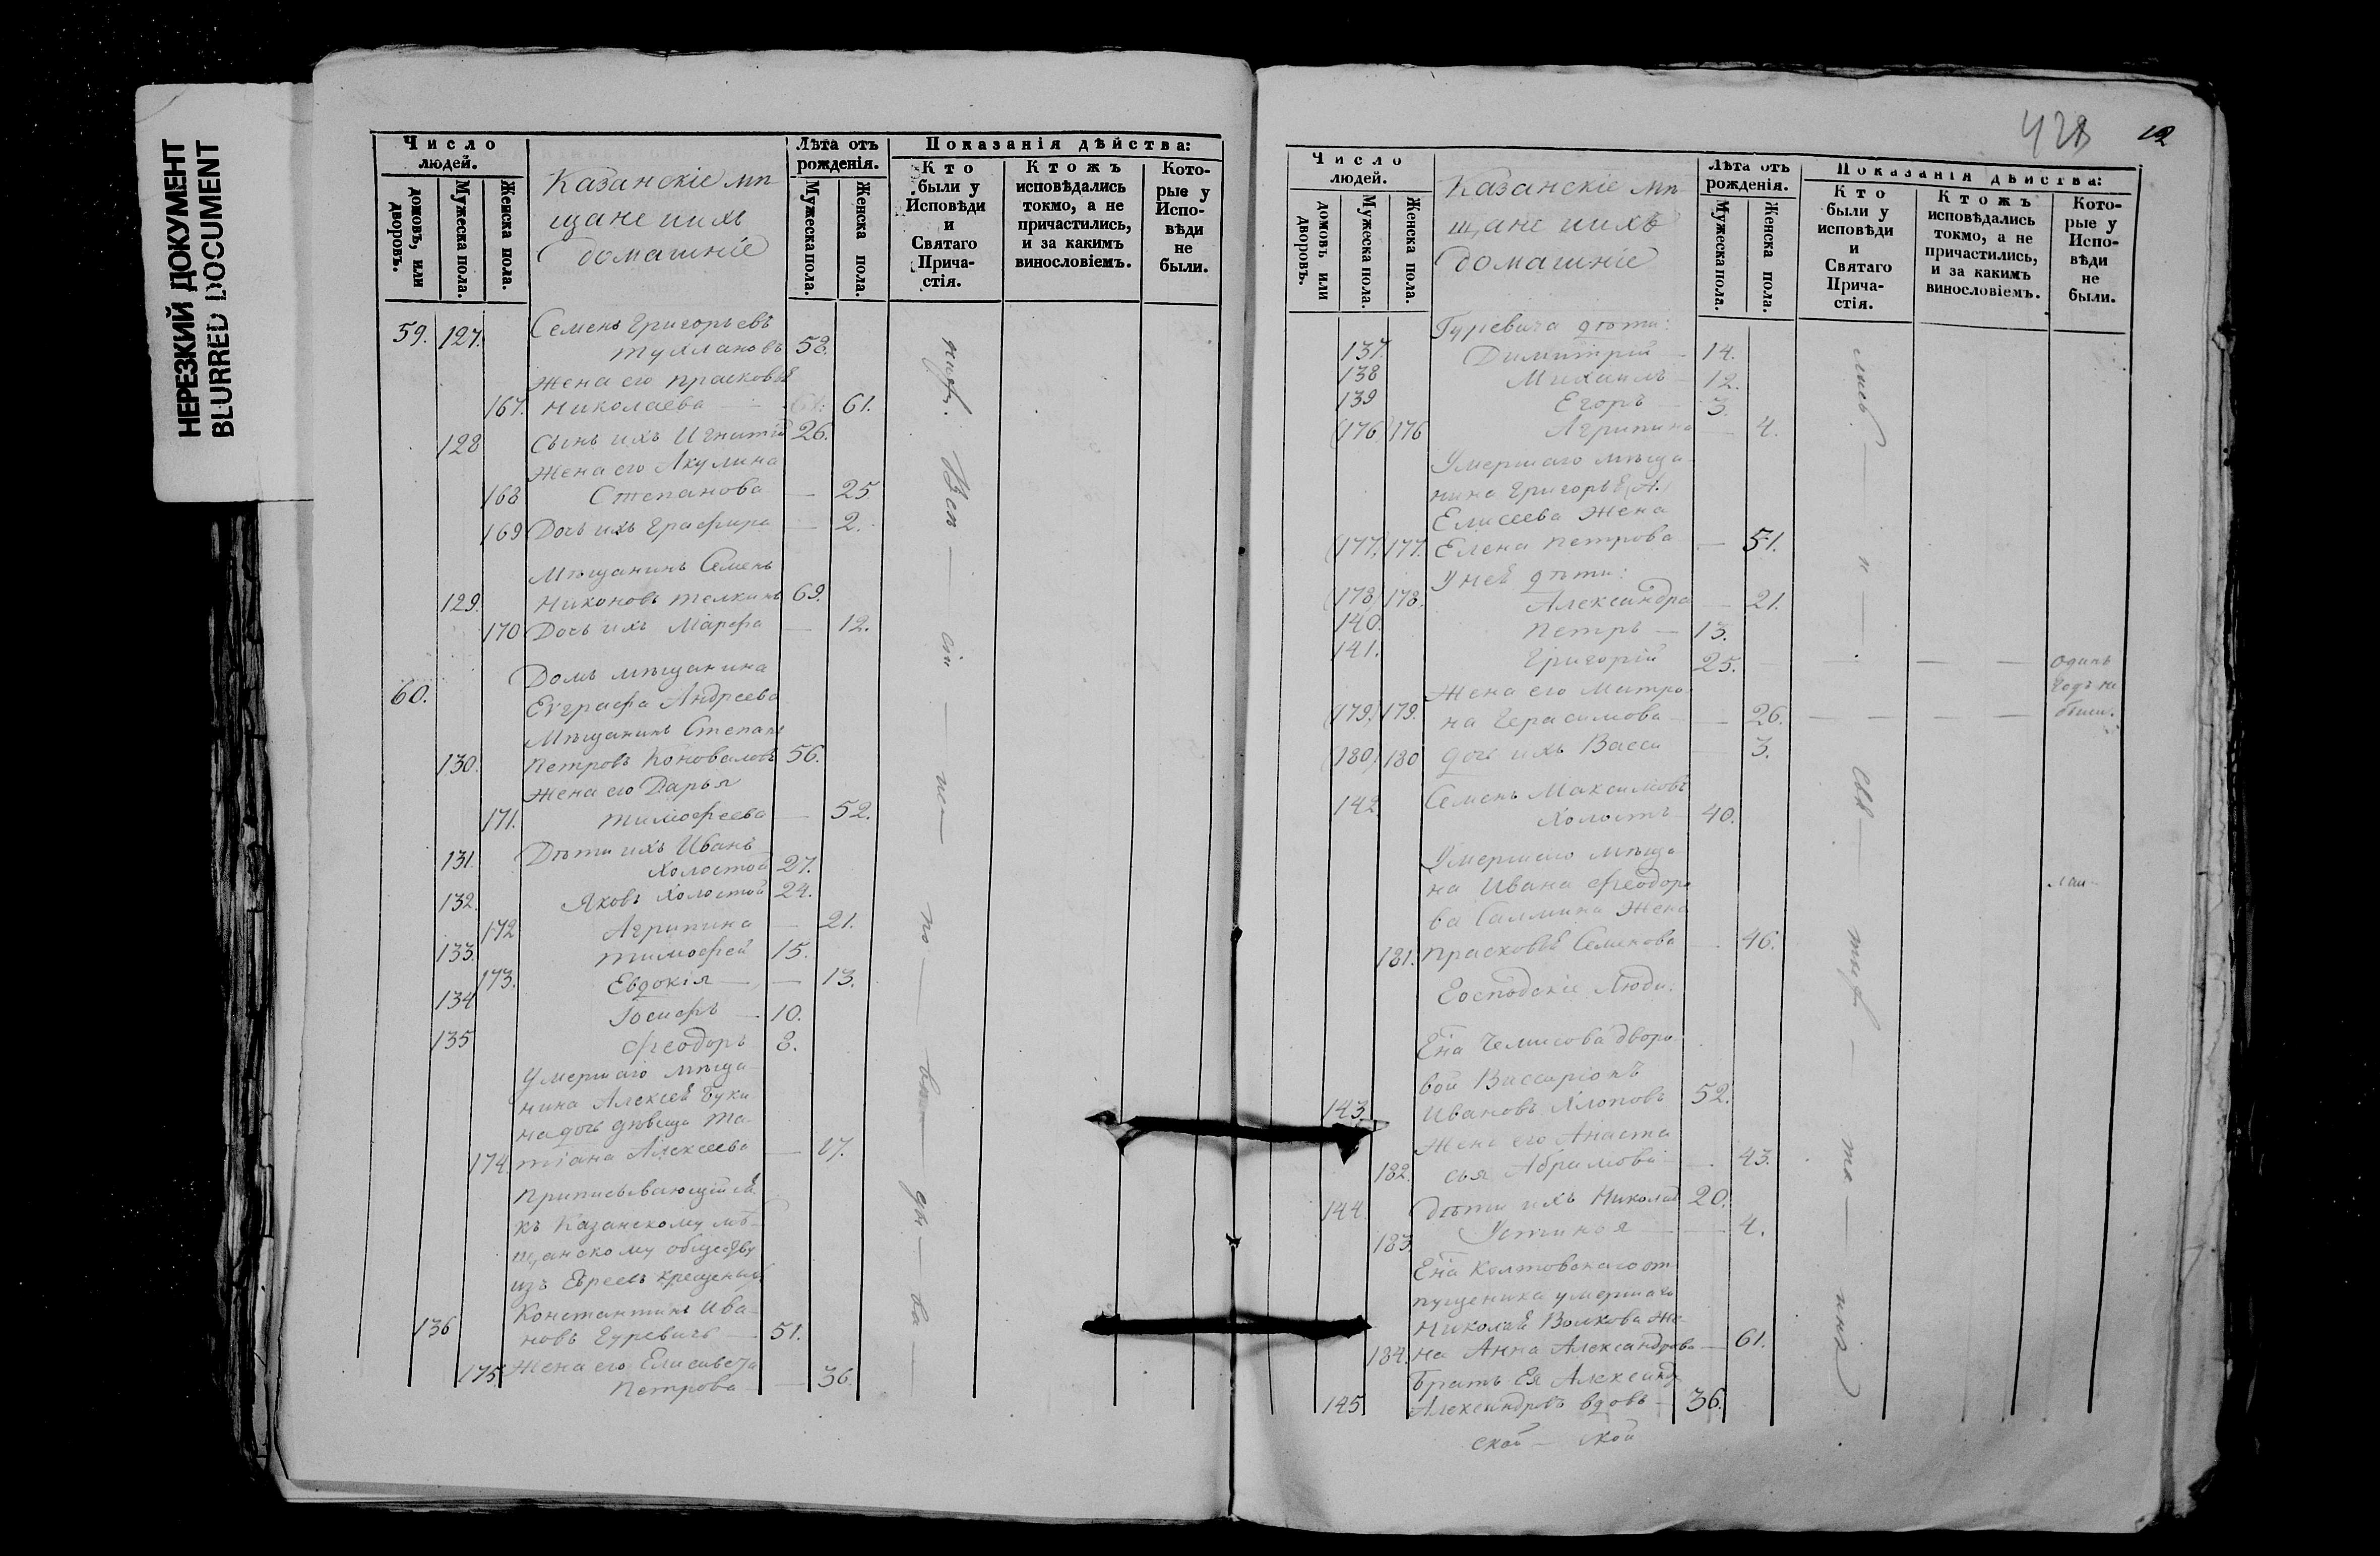 НЕРЕЗКИЙ ДОКУМЕНТ
BLURRED DOCUMENT
Число
людей.
домовъ, или дворовъ.
Мужеска пола.
Женска пола.
Казанскіе мѣ-
щане и ихъ
домашніе
Лѣта отъ
рожденія.
Мужеска пола.
Женска пола.
Показанія дѣйства:
Кто
были у
Исповѣди
и
Святаго
Прича-
стія.
Ктожъ
исповѣдались
токмо, а не
причастились,
и за какимъ
винословіемъ.
Кото-
рые у
Испо-
вѣди
не
были.
59. 127. Семенъ Григорьевъ
58.
Жена его Прасковья
167. Николаева — 61.
128 Сынъ ихъ 26.
Жена его Акулина
168 Степанова — 25
169 Дочь ихъ Графира — 2.
Мѣщанинъ Семенъ
129. Никоновъ Телкинъ 69.
170 Дочь ихъ Марфа — 12.
Домъ мѣщанина
60. Евграфа Андреева
Мѣщанинъ Степанъ
130. Петровъ Коноваловъ 56.
Жена его Дарья
171. Тимофеева — 52.
131. Дѣти ихъ Иванъ
Холостой 27.
132. Яковъ Холостой 24.
172 Агрипина — 21.
133. Тимофей 15.
173. Евдокія — — 13.
134 Іосифъ — 10.
135 Феодоръ 8.
Умершаго мѣща-
нина Алексея Буки
на дочь девица Та-
174. тіана Алексеева — 17.
Приписывающійся
къ Казанскому мѣ-
щанскому обществу
изъ Евреевъ крещеный
Константинъ Ива-
136 новъ Гуревичъ — 51.
175 Жена его Елисавета
Петрова — — 36.
428 12
Число
людей.
домовъ или дворовъ.
Мужеска пола.
Женска пола.
Казанскіе мѣ-
щане и ихъ
домашніе
Лѣта отъ
рожденія.
Мужеска пола.
Женска пола.
Показанія дѣйства:
Кто
были у
исповѣди
и
Святаго
Прича-
стія.
Ктожъ
исповѣдались
токмо, а не
причастились,
и за какимъ
винословіемъ.
Кото-
рые у
Испо-
вѣди
не
были.
Гуревича дѣти:
137. Димитрій — 14.
138 Михаилъ — 12.
139 Егоръ — 3.
(176) 176 Агрипина — 4.
Умершаго мѣща-
нина Григорья (А.)
Елисеева Жена
(177.) 177. Елена Петрова — 51.
У нея дѣти:
(178) 178. Александра — 21.
140. Петръ — 13.
141. Григорій 25. — — — — одинъ
Жена его Матро- годъ не
(179.) 179. на Герасимова — — 26. — — — — были.
(180) 180 дочь ихъ Васса — 3.
142 Семенъ Максимовъ
Холостъ — 40.
Умершаго мѣща-
на Ивана Феодоро-
ва Жена
181. Прасковья Семенова — 46.
Господскіе Люди.
Ена Чемисова дворо-
вой Виссаріонъ
143. Ивановъ Хлоповъ 52.
Жена его Анаста
182. сья Абрамова — — 43.
144. Дѣти ихъ Николай 20.
183. Устинья — — 4.
Ена Колтовскаго от-
пущеника умершаго
Николая Волкова Же-
184. на Анна Александрова — 61.
Братъ Ея Александръ
145. Александровъ вдовъ — 36.
ской — ской